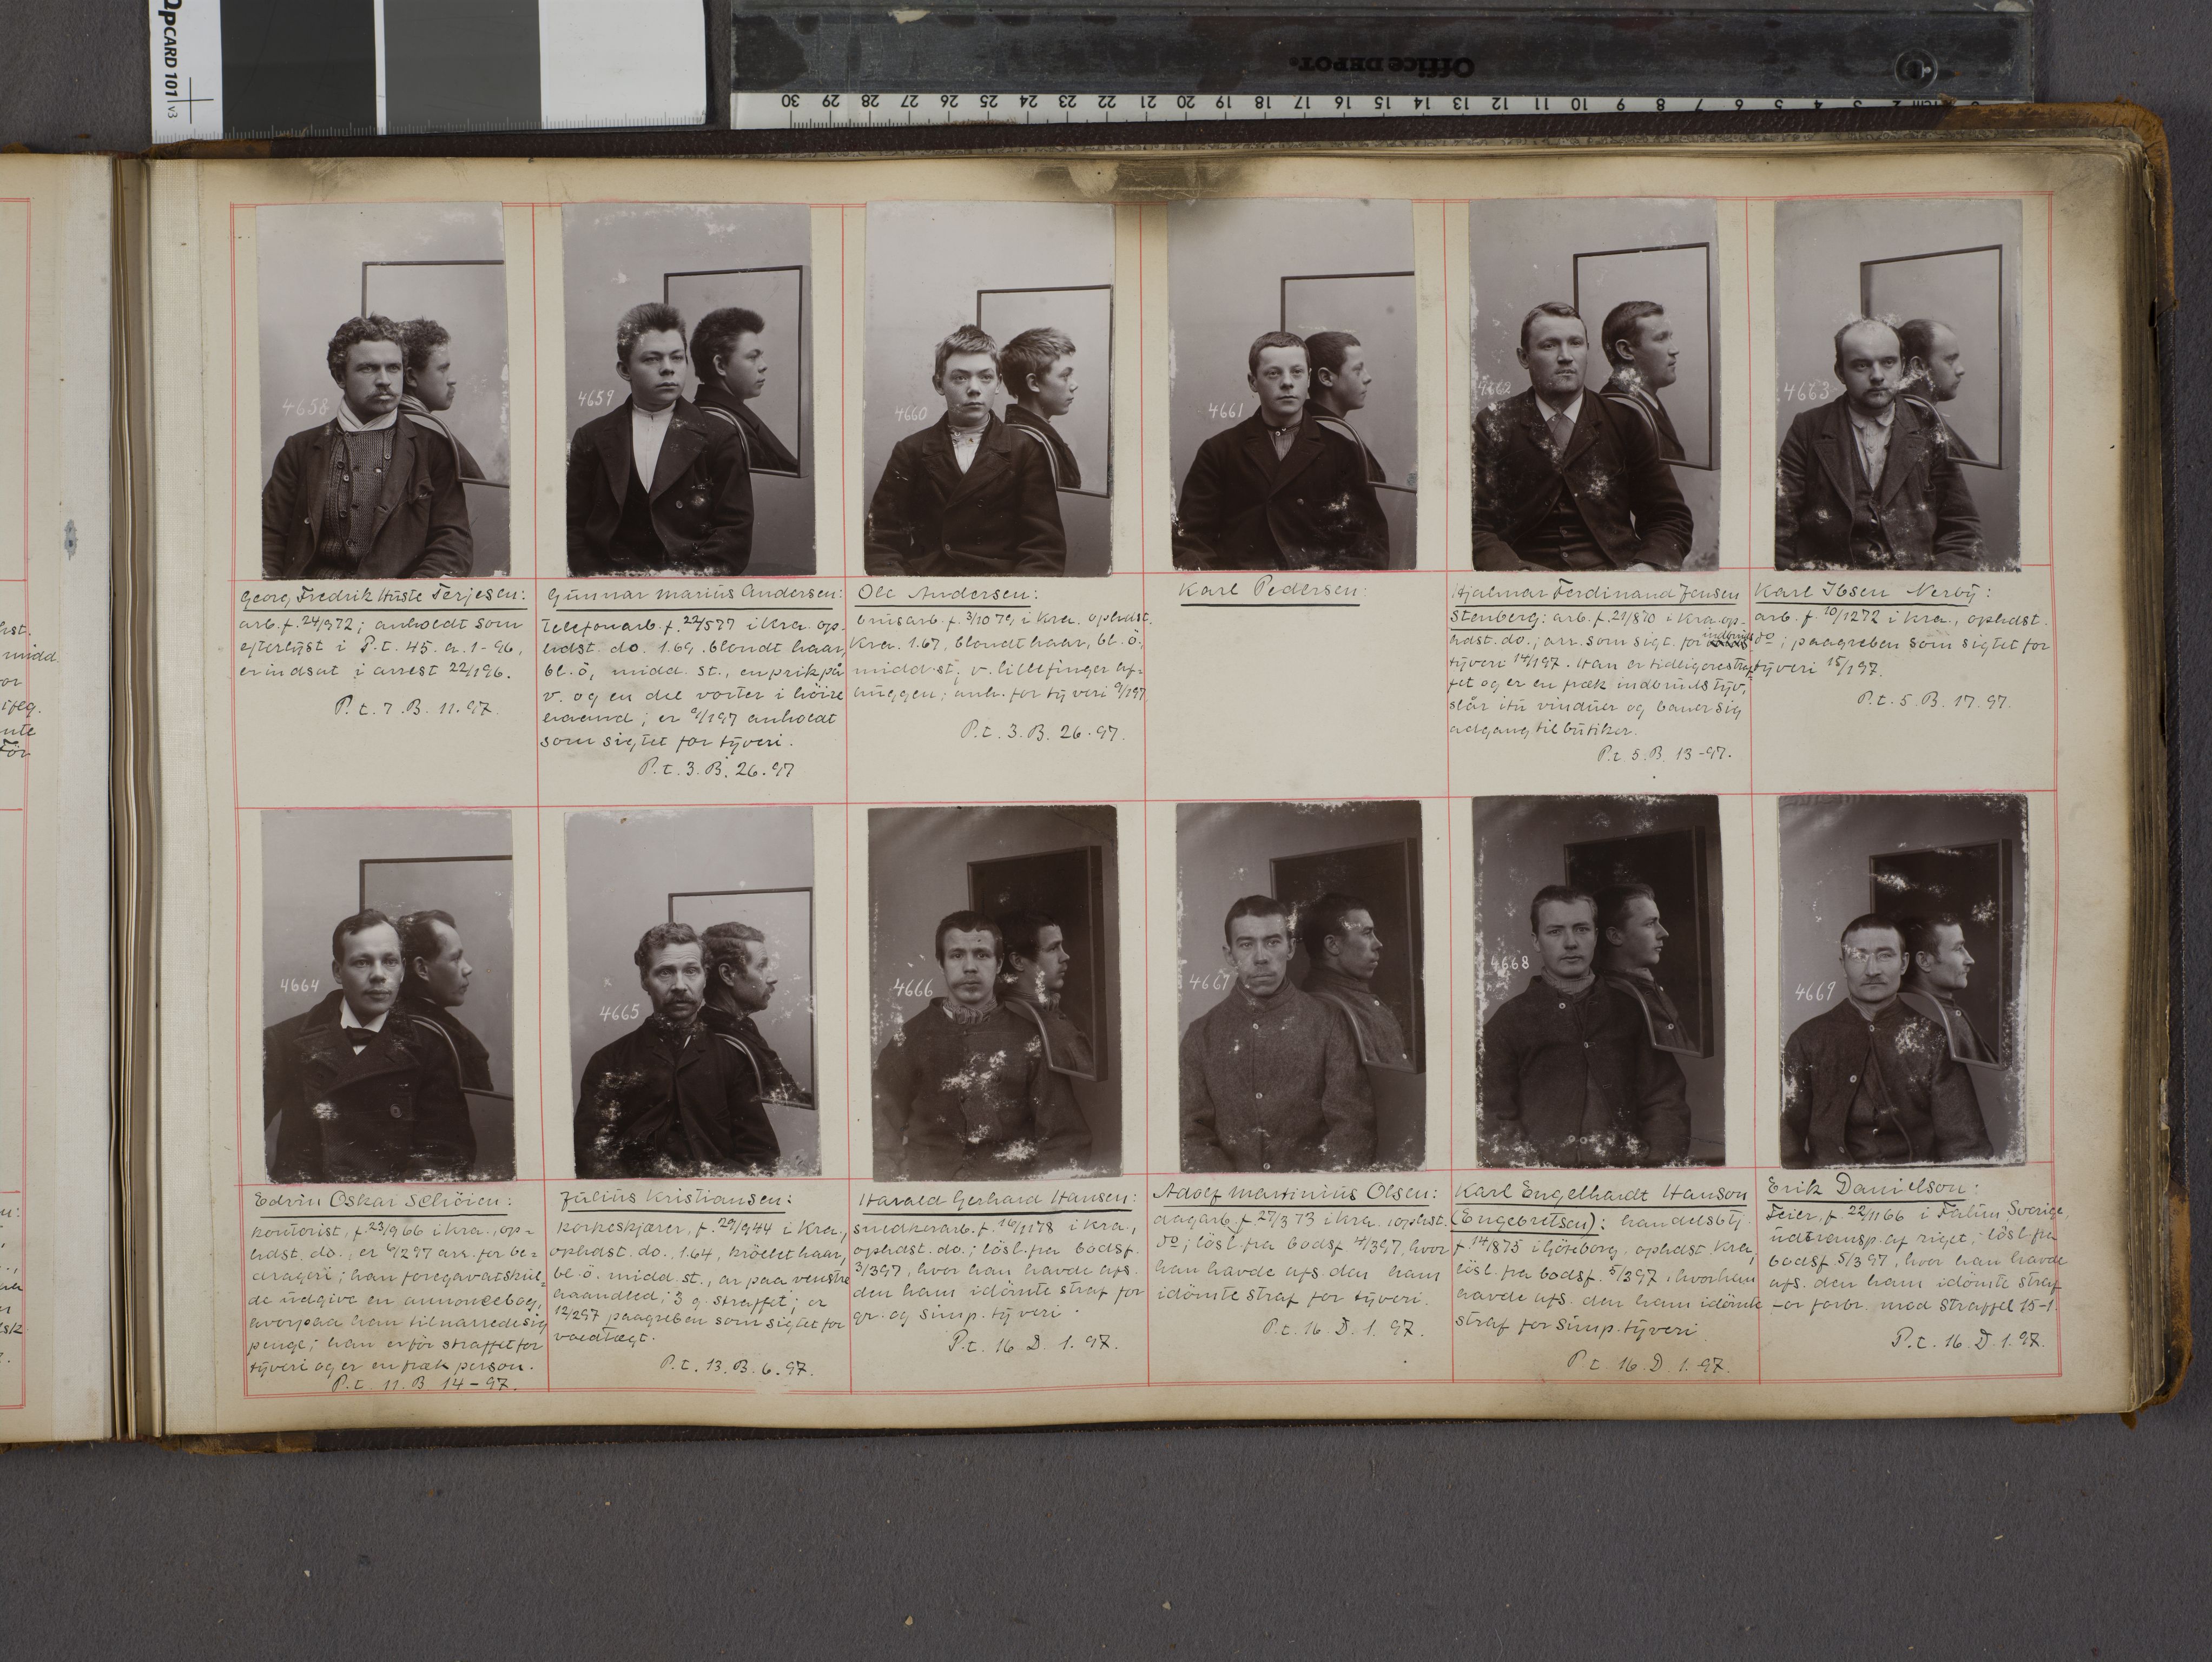 QpCARD 101 v3
Office DEPOT.
30 29 28 27 26 25 24 23 22 21 20 19 18 17 16 15 14 13 12 11 10 9 8 7 6 5 4 3 2
4658
4659
4660
4661
4662
4663
Georg Fredrik Huste Terjesen:
arb. f. 24/9 72; anholdt som
efterlyst i P.t. 45. a. 1-96,
er indsat i arrest 22/1 96.
P.t. 7. B. 11. 97.
Gunnar Marius Andersen:
Telefonarb. f. 22/5 77 i Kra. op-
holdst. do. 1.69. blondt haar,
bl. ö, midd. st., en prik på
v. og en del vorter i höire
haand; er 9/1 97 anholdt
som sigtet for tyveri.
P.t. 3. B. 26. 97
Ole Andersen:
brusarb. f. 3/10 79 i Kra. opholdst.
Kra. 1.67, blondt haar, bl. ö.,
midd. st., v. lillefinger af-
huggen; anh. for tyveri 9/1 97
P.t. 3. B. 26. 97.
Karl Pedersen:
Hjalmar Ferdinand Jensen
Stenberg: arb. f. 21/8 70 i Kra. op-
holdst. do.; arr. som sigt. for indbruds
tyveri 14/1 97. Han er tidligere straf-
fet og er en fræk indbrudstyv,
slår itu vinduer og baner sig
adgang til butiker.
P.t. 5. B. 13-97.
Karl Ibsen Nerby:
arb. f. 10/12 72 i Kra., opholdst.
do; paagreben som sigtet for
tyveri 15/1 97.
P.t. 5. B. 17. 97.
4664
4665
4666
4667
4668
4669
Edvin Oskar Schöien:
kontorist, f. 23/9 66 i Kra., op-
holdst. do., er 6/2 97 arr. for be-
drageri; han foregav at skul-
de udgive en annoncebog,
hvorpaa han tilnarrede sig
penge; han er för straffet for
tyveri og er en fræk person.
P.t. 11. B 14-97.
Julius Kristiansen:
Korkeskjærer, f. 29/9 44 i Kra.,
opholdst. do. 1.64, kröllet haar,
bl. ö. midd. st., ar paa venstre
haandled; 3 g. straffet; er
12/2 97 paagreben som sigtet for
voldtægt.
P.t. 13. B. 6. 97.
Harald Gerhard Hansen:
snedkerarb. f. 16/11 78 i Kra.,
opholdst. do.; lösl. fra bodsf.
3/3 97, hvor han havde afs.
den ham idömte straf for
gr. og simp. tyveri.
P.t. 16. D. 1. 97.
Adolf Martinius Olsen:
dagarb. f. 27/3 73 i Kra. opholdst.
do; lösl. fra bodsf. 4/3 97, hvor
han havde afs. den ham
idömte straf for tyveri.
P.t. 16. D. 1. 97.
Karl Engelhardt Hanson
(Engebretsen): handelsbtj.
f. 14/8 75 i Göteborg, opholdst. Kra,
lösl. fra bodsf. 5/3 97, hvor han
havde afs. den ham idömte
straf for simp. tyveri.
P.t. 16. D. 1. 97.
Erik Danielson:
Feier, f. 22/11 66 i Falun, Sverige,
udtransp. af riget; lösl. fra
bodsf. 5/3 97, hvor han havde
afs. den ham idömte straf
for forbr. mod straffel. 15-1.
P.t. 16. D. 1. 97.